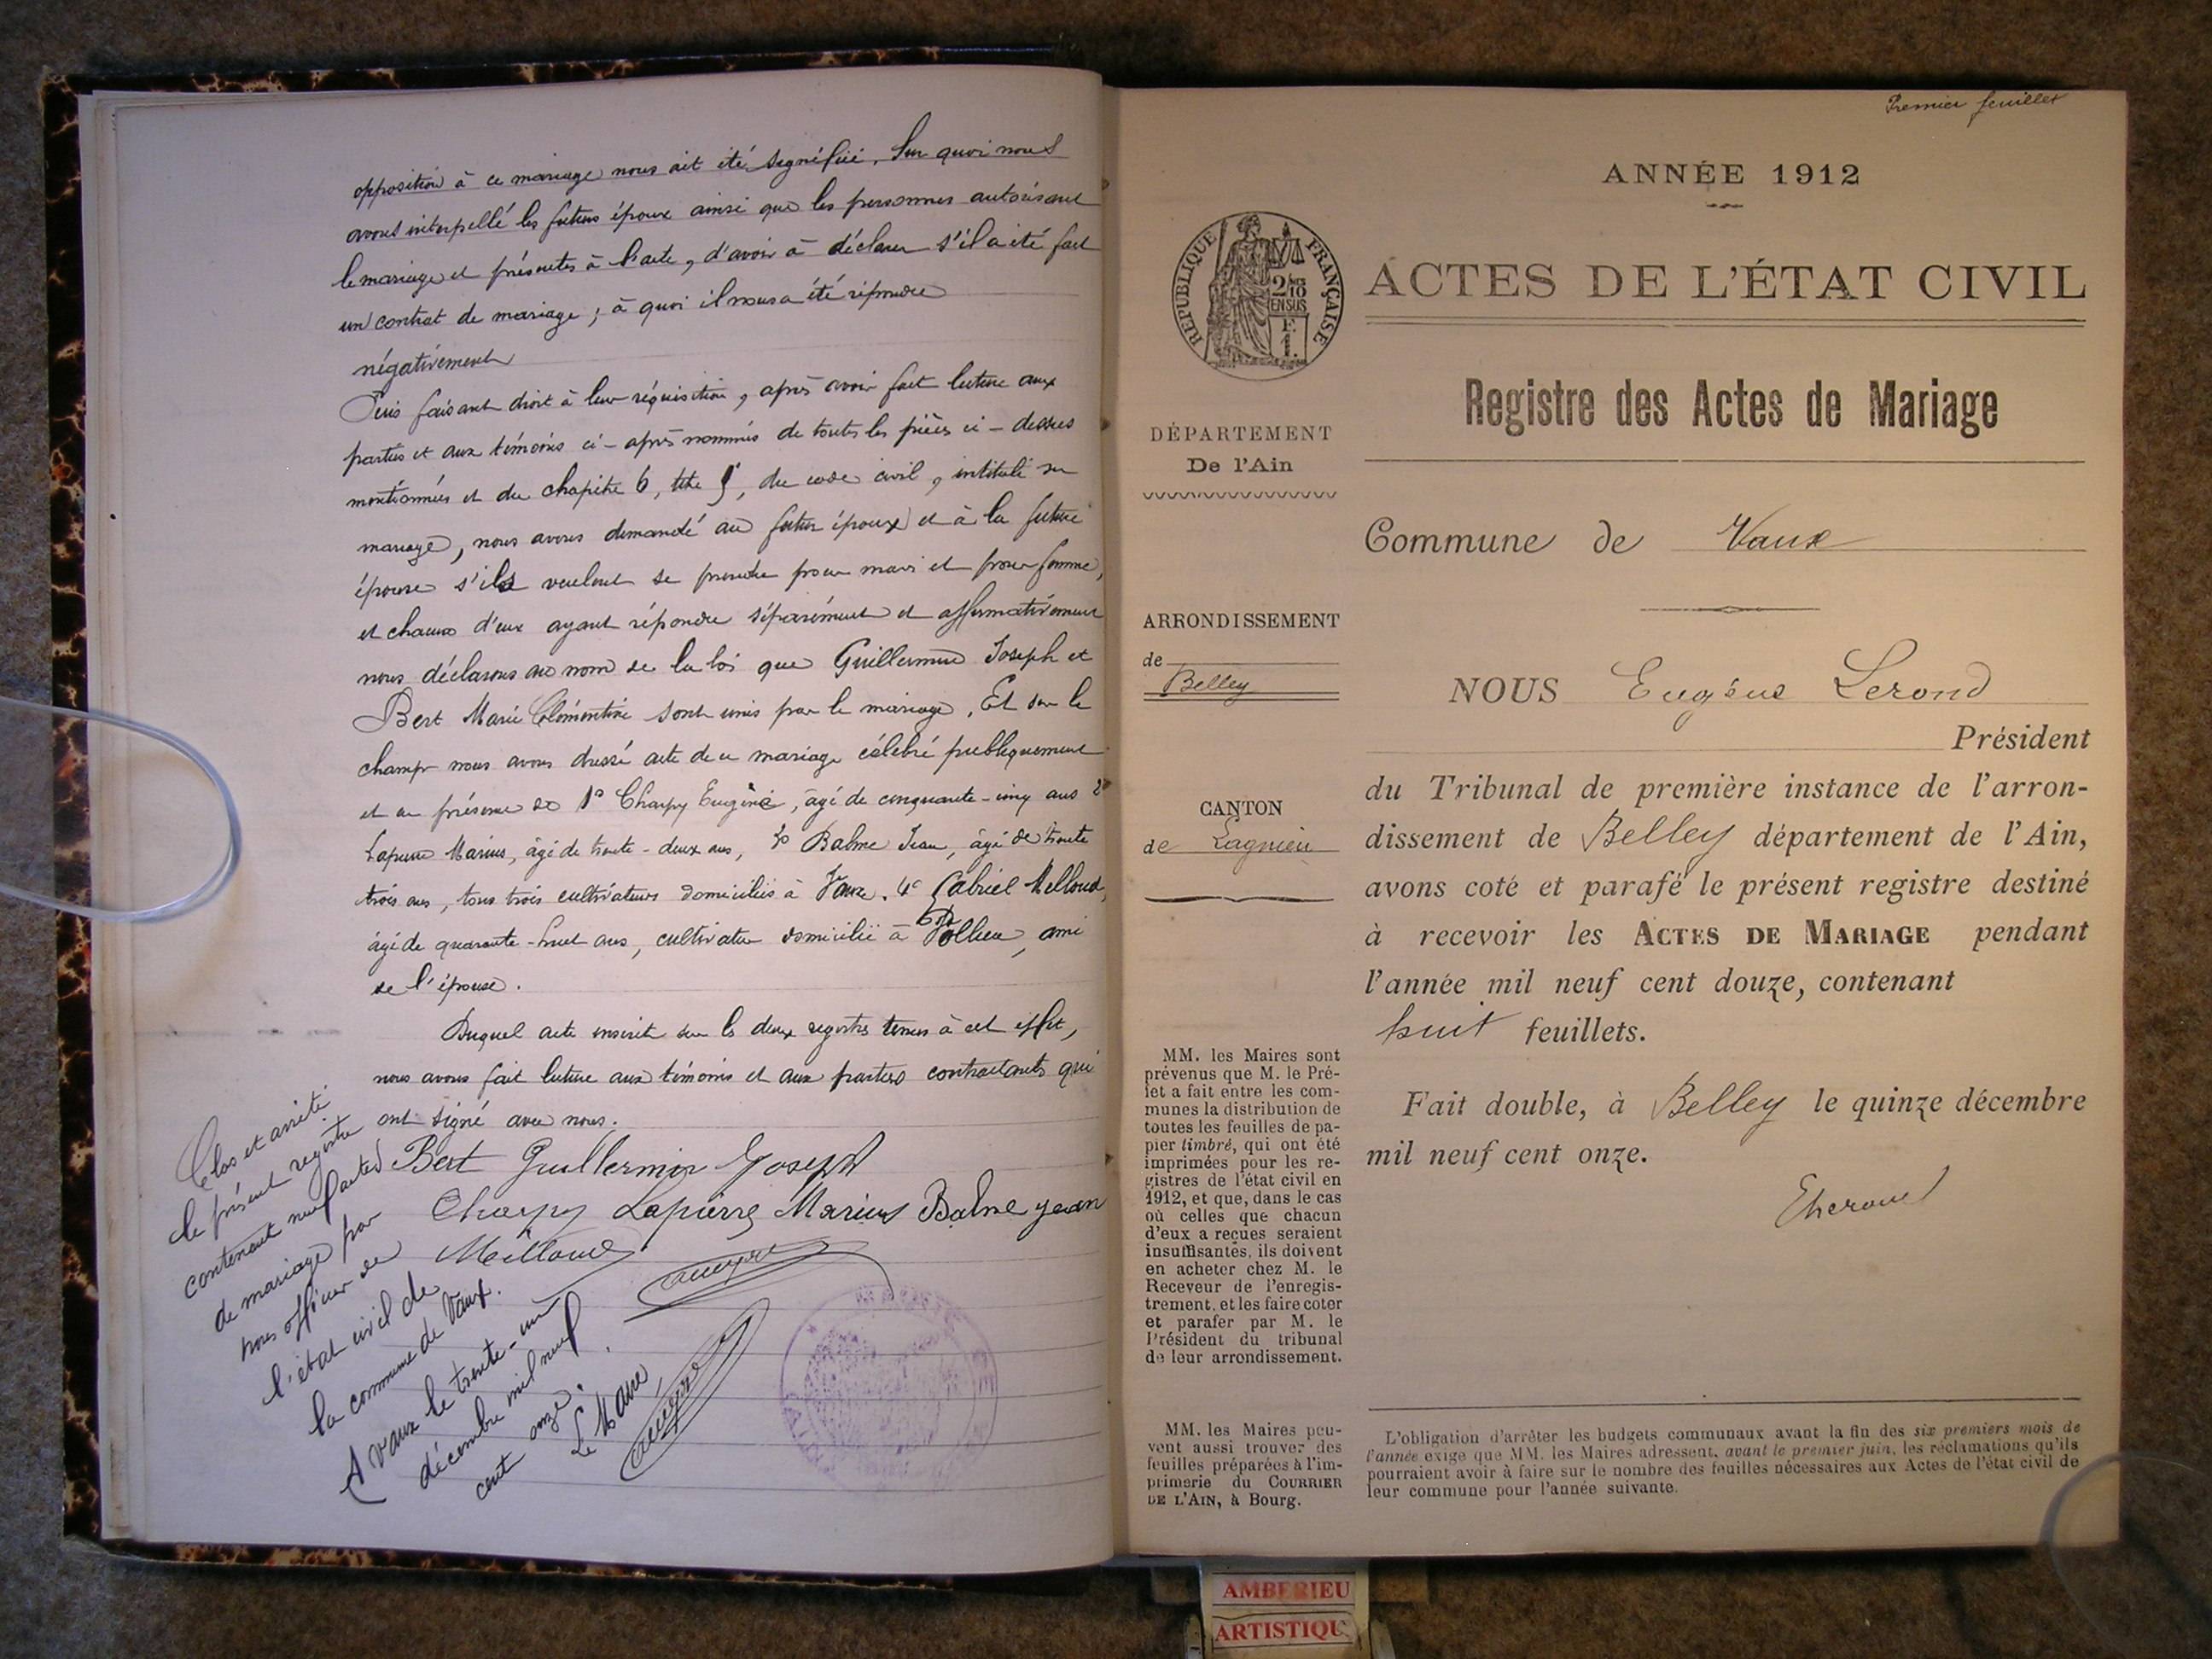 opposition à ce mariage nous ait été signifiée. Sur quoi nous
avons interpellé les futurs époux ainsi que les personnes autorisant
le mariage et présentes à l'acte, d'avoir à déclarer s'il a été fait
un contrat de mariage ; à quoi il nous a été répondu
négativement
Puis faisant droit à leur réquisition, après avoir fait lecture aux
parties et aux témoins ci-après nommés de toutes les pièces ci-dessus
mentionnées et du chapitre 6, titre 5, du code civil, intitulé du
mariage, nous avons demandé au futur époux et à la future
épouse s'ils veulent se prendre pour mari et pour femme,
et chacun d'eux ayant répondu séparément et affirmativement
nous déclarons au nom de la loi que Guillermin Joseph et
Bert Marie Clémentine sont unis par le mariage. Et sur le
champ nous avons dressé acte de ce mariage célébré publiquement
et en présence de 1º Charpy Eugène, âgé de cinquante-cinq ans 2º
Lapierre Marius, âgé de trente-deux ans, 3º Balme Jean, âgé de trente
trois ans, tous trois cultivateurs domiciliés à Vaux. 4º Gabriel Milloud,
âgé de quarante-huit ans, cultivateur domicilié à Pollieu, ami
de l'épouse.
Duquel acte inscrit sur les deux registres tenus à cet effet,
nous avons fait lecture aux témoins et aux parties contractants qui
ont signé avec nous.
Bert Guillermin Joseph
Charpy Lapierre Marius Balme jean
Milloud
Clos et arrêté
le présent registre
contenant neuf actes
de mariage par
nous officier de
l'état civil de
la commune de Vaux.
A Vaux le trente-un
décembre mil neuf
cent onze.
Le Maire,
Premier feuillet
ANNÉE 1912
RÉPUBLIQUE FRANÇAISE
2/10
EN SUS
F.
1.
ACTES DE L'ÉTAT CIVIL
Registre des Actes de Mariage
DÉPARTEMENT
De l'Ain
Commune de Vaux
ARRONDISSEMENT
de
Belley
NOUS Eugène Lerond
Président
du Tribunal de première instance de l'arron-
dissement de Belley département de l'Ain,
avons coté et parafé le présent registre destiné
à recevoir les ACTES DE MARIAGE pendant
l'année mil neuf cent douze, contenant
huit feuillets.
Fait double, à Belley le quinze décembre
mil neuf cent onze.
CANTON
de Lagnieu
MM. les Maires sont
prévenus que M. le Pré-
fet a fait entre les com-
munes la distribution de
toutes les feuilles de pa-
pier timbré, qui ont été
imprimées pour les re-
gistres de l'état civil en
1912, et que, dans le cas
où celles que chacun
d'eux a reçues seraient
insuffisantes, ils doivent
en acheter chez M. le
Receveur de l'enregis-
trement, et les faire coter
et parafer par M. le
Président du tribunal
de leur arrondissement.
MM. les Maires peu-
vent aussi trouver des
feuilles préparées à l'im-
primerie du COURRIER
DE L'AIN, à Bourg.
L'obligation d'arrêter les budgets communaux avant la fin des six premiers mois de
l'année exige que MM. les Maires adressent, avant le premier juin, les réclamations qu'ils
pourraient avoir à faire sur le nombre des feuilles nécessaires aux Actes de l'état civil de
leur commune pour l'année suivante.
AMBERIEU
ARTISTIQU